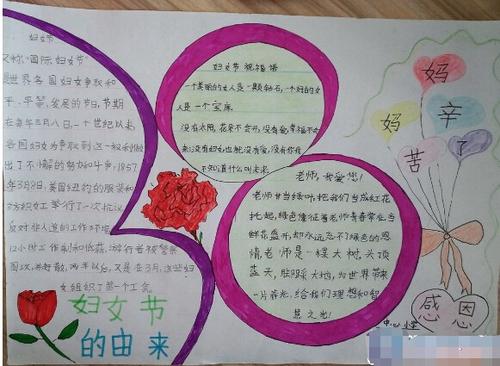 妇女节
又称"国际妇女节"
是世界各国妇女争取和
平、平等、发展的节日,节期
在每年三月八日,一个世纪以来,
各国妇女为争取到这一权利做
出了不小懈的努力和斗争,1857
年3月8号,美国纽约的服装和
纺织女工举行了一次抗议
反对非人道的工作环境
12小时工作制和低薪,游行者被警察
围攻并赶散,两年以后,又是在3月,这些妇
女组织了第一个工会。
妇女节
的由来
妇女节祝福语
一个美丽的女人是一颗钻石,一个好的女
人是一个宝库
没有太阳,花朵不会开,没有爱,幸福不会
来,没有妇女也就没有爱,没有你我
不知道什么叫未来
老师,我爱您!
老师甘当绿叶,把我们当成红花
托起,绿色象征着老师青春常在,当
鲜花盛开,却永远忘不了绿色的恩
情,老师是一棵大树,头顶
蓝天,脚踩大地,为世界带来
一片荫光,给我们理想和智
慧之光!
妈
妈
辛
苦
了
感恩
中心小学